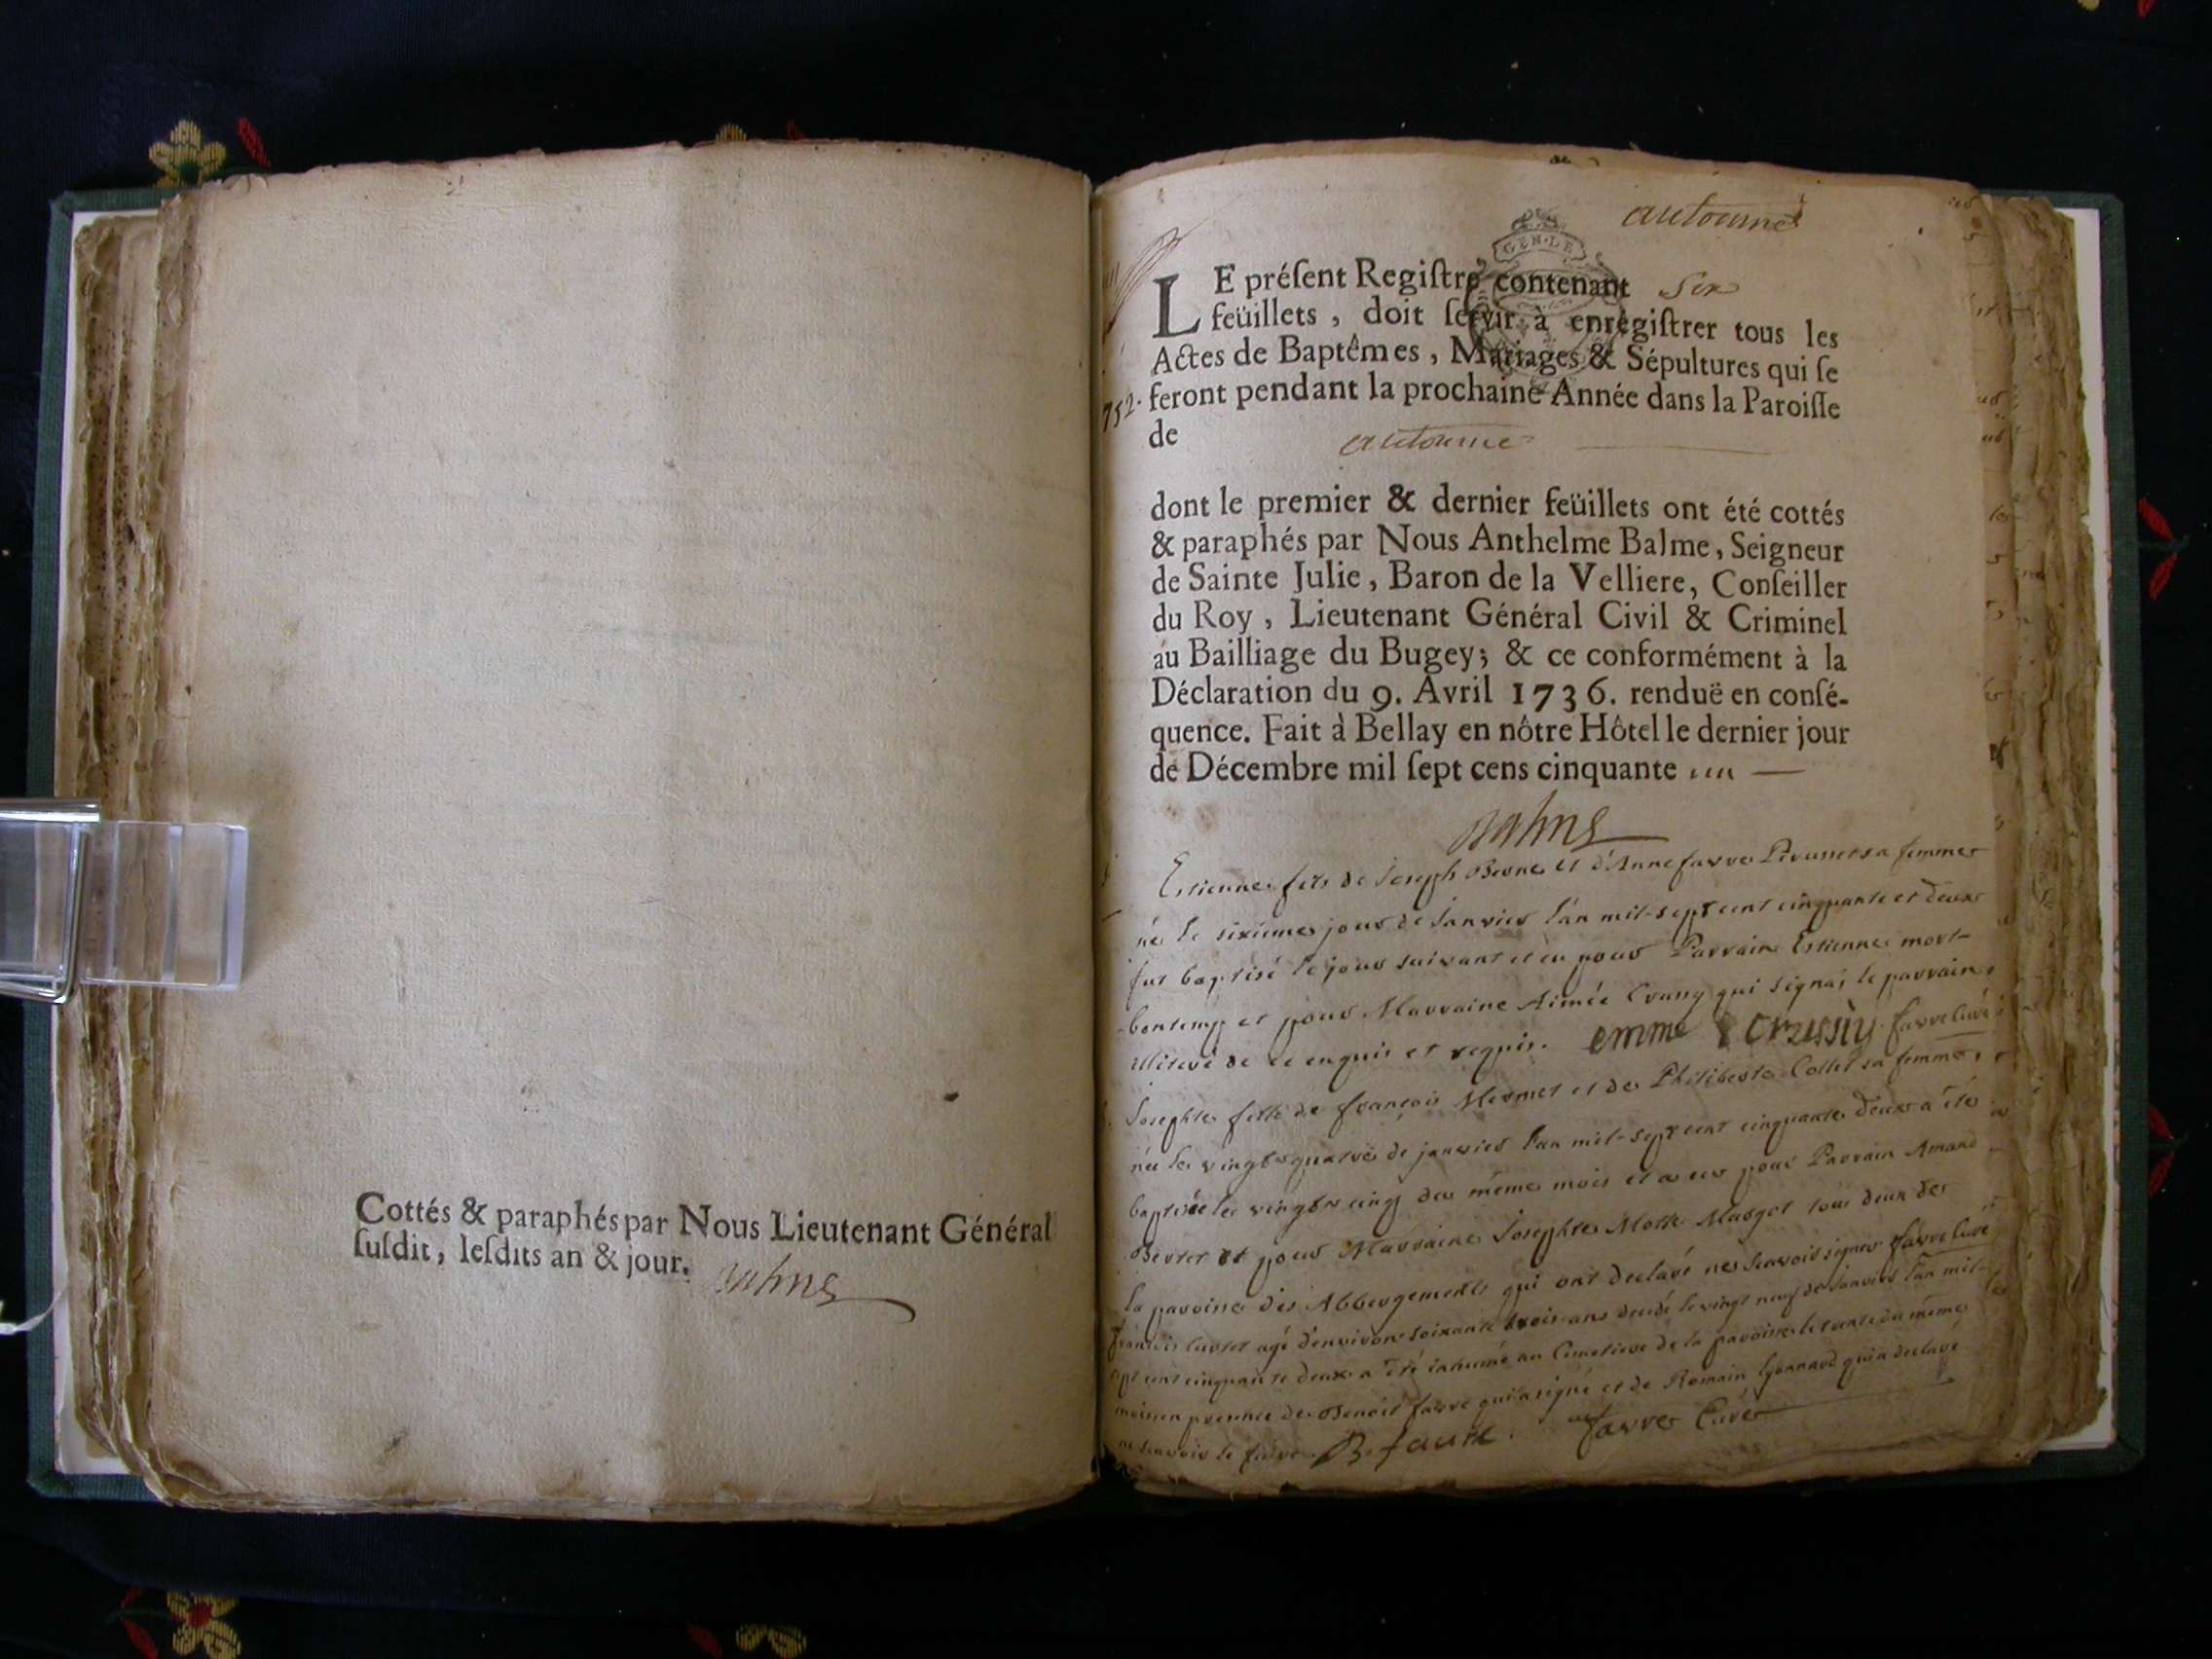 Cottés & paraphés par Nous Lieutenant Général
ſuſdit, leſdits an & jour.
autoume
GEN·LE
LE préſent Regiſtre contenant six
feüillets, doit ſervir à enregiſtrer tous les
Actes de Baptêmes, Mariages & Sépultures qui ſe
feront pendant la prochaine Année dans la Paroiſſe
752.
de autoume
dont le premier & dernier feüillets ont été cottés
& paraphés par Nous Anthelme Balme, Seigneur
de Sainte Julie, Baron de la Velliere, Conſeiller
du Roy, Lieutenant Général Civil & Criminel
au Bailliage du Bugey; & ce conformément à la
Déclaration du 9. Avril 1736. renduë en conſé-
quence. Fait à Bellay en nôtre Hôtel le dernier jour
de Décembre mil ſept cens cinquante un
Estienne fils de Joseph et d'Anne favre sa femme
né le sixieme jour de Janvier l'an mil-sept cent cinquante et deux
fut baptisé le jour suivant et eu pour Parrain Estienne mort-
-bontemp et pour Marraine Aimée qui signa; le parrain
illiteré de ce enquis et requis. emme crussiy favre curé
Josephte fille de françois Mermet et de Philiberte Collet sa femme,
née le vingt quatre de janvier l'an mil-sept cent cinquante deux a été
baptisée le vingt cinq du même mois et a eu pour Parrain Amand
et pour Marraine Josephte Masgot tous deux de
la paroisse des Abbergements qui ont declaré ne sçavoir signer favre curé
françois agé d'environ soixante trois ans decedé le vingt neuf de Janvier l'an mil-
sept cent cinquante deux a été inhumé au Cimetiere de la paroisse le trente du même
mois en presence de Benoit favre qui a signé et de Romain Lyonnard qui a declaré
ne sçavoir le faire. B. faure favre Curé